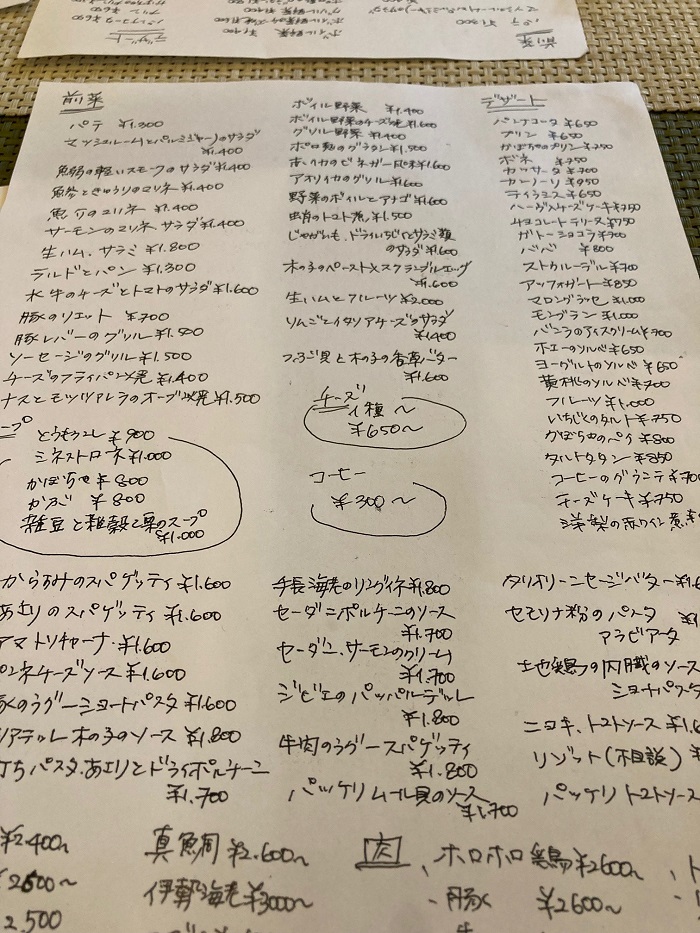 前菜
パテ ¥1.300
マッシュルームとパルミジャーノのサラダ
¥1.400
魚卵の軽いスモークのサラダ¥1.400
魚介ときゅうりのマリネ ¥1.400
魚介のマリネ ¥1.400
サーモンのマリネ サラダ ¥1.400
生ハム、サラミ ¥1.800
ラルドとパン ¥1.300
水牛のチーズとトマトのサラダ ¥1.600
豚のリエット ¥700
豚レバーのグリル
ソーセージのグリル ¥1.500
チーズのフライパン焼 ¥1.400
ナスとモッツァレラのオーブン焼¥1.500
ープ
とうもろこし ¥900
ミネストローネ¥1.000
かぼちゃ ¥800
かぶ ¥800
雑豆と雑穀と栗のスープ
¥1.000
ボイル野菜 ¥1.400
ボイル野菜のチーズ焼¥1.600
グリル野菜 ¥1.400
ポロねぎのグラタン ¥1.500
赤イカのビネガー風味¥1.600
アオリイカのグリル ¥1.600
野菜のボイルとアナゴ ¥1.600
のトマト煮 ¥1.500
じゃがいも、ドライいちじくとサラミ類
のサラダ ¥1.600
木の子のペーストとスクランブルエッグ
¥1.600
生ハムとフルーツ ¥2.000
りんごとイタリアチーズのサラダ
¥1.400
つぶ貝と木の子の香草バター
¥1.600
チーズ
1種〜
¥650〜
コーヒー
¥300〜
デザート
パンナコッタ ¥650
プリン ¥650
かぼちゃのプリン
ボネ ¥750
カッサータ ¥700
カンノーリ ¥950
ティラミス ¥650
ハーブ入チーズケーキ¥750
チョコレートテリーヌ¥750
ガトーショコラ ¥700
ババ ¥800
ストゥルーデル ¥700
アッフォガート ¥850
マロングラッセ ¥1.000
モンブラン ¥1.000
バニラのアイスクリーム ¥700
ホエーのソルベ ¥650
ヨーグルトのソルベ ¥650
黄桃のソルベ ¥700
フルーツ ¥1.000
いちじくのタルト ¥750
かぼちゃのパイ ¥800
タルトタタン ¥850
コーヒーのグラニテ ¥70
チーズケーキ ¥750
洋梨の赤ワイン煮
からすみのスパゲッティ ¥1.600
あさりのスパゲッティ ¥1.600
アマトリチャーナ ¥1.600
ペンネチーズソース ¥1.600
豚のラグーショートパスタ ¥1.600
リアテッレ 木の子のソース ¥1.800
打ちパスタ.あさりとドライポルチーニ
¥1.700
手長海老のリングイネ¥1.800
セーダニポルチーニのソース
¥1.700
セーダニ.サーモンのクリーム
¥1.700
ジビエのパッパルデッレ
¥1.800
牛肉のラグースパゲッティ
¥1.800
パッケリムール貝のソース
¥1.700
タリオリーニセージバター ¥1.6
セモリナ粉のパスタ
アラビアータ
土地鶏の内臓のソース
ショートパスタ
ニョキ、トマトソース ¥1.6
リゾット(相談)
パッケリトマトソース
¥2.400〜
¥2600〜
2.500
真鯛 ¥2.600〜
伊勢海老 ¥3000〜
肉
、ホロホロ鶏 ¥2600〜
・豚 ¥2600〜